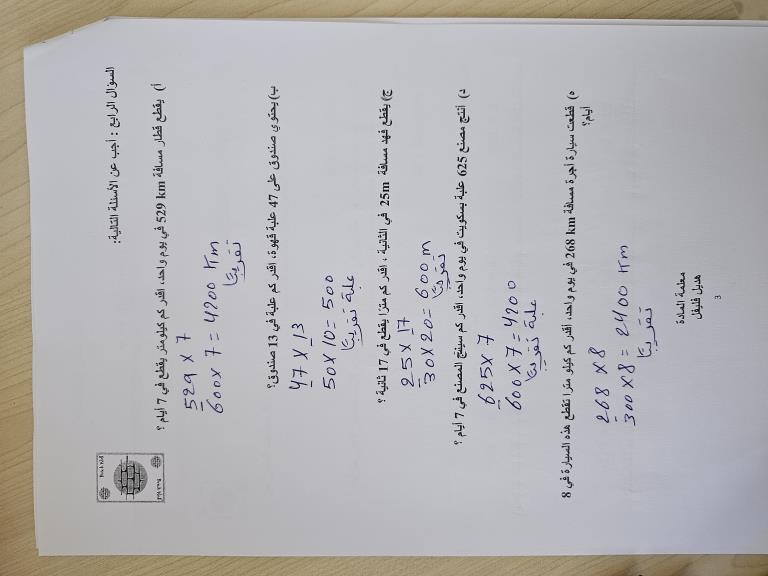 السؤال الرابع : أجب عن الأسئلة التالية:
أ) يقطع قطار مسافة 529 km في يوم واحد، اقدر كم كيلو متر يقطع في 7 أيام ؟
529 x 7
600 x 7 = 4200 Km
تقريبًا
ب) يحتوي صندوق على 47 علبة قهوة، اقدر كم علبة في 13 صندوق؟
47 x 13
50 x 10 = 500
علبة تقريبًا
ج) يقطع فهد مسافة 25m في الثانية ، اقدر كم مترا يقطع في 17 ثانية ؟
25 x 17
30 x 20 = 600 m
تقريبًا
د) أنتج مصنع 625 علبة بسكويت في يوم واحد، اقدر كم سينتج المصنع في 7 أيام ؟
625 x 7
600 x 7 = 4200
علبة تقريبًا
ه) قطعت سيارة أجرة مسافة 268 km في يوم واحد، اقدر كم كيلو مترا تقطع هذه السيارة في 8
أيام؟
268 x 8
300 x 8 = 2400 Km
تقريبًا
معلمة المادة
هديل قليقل
3